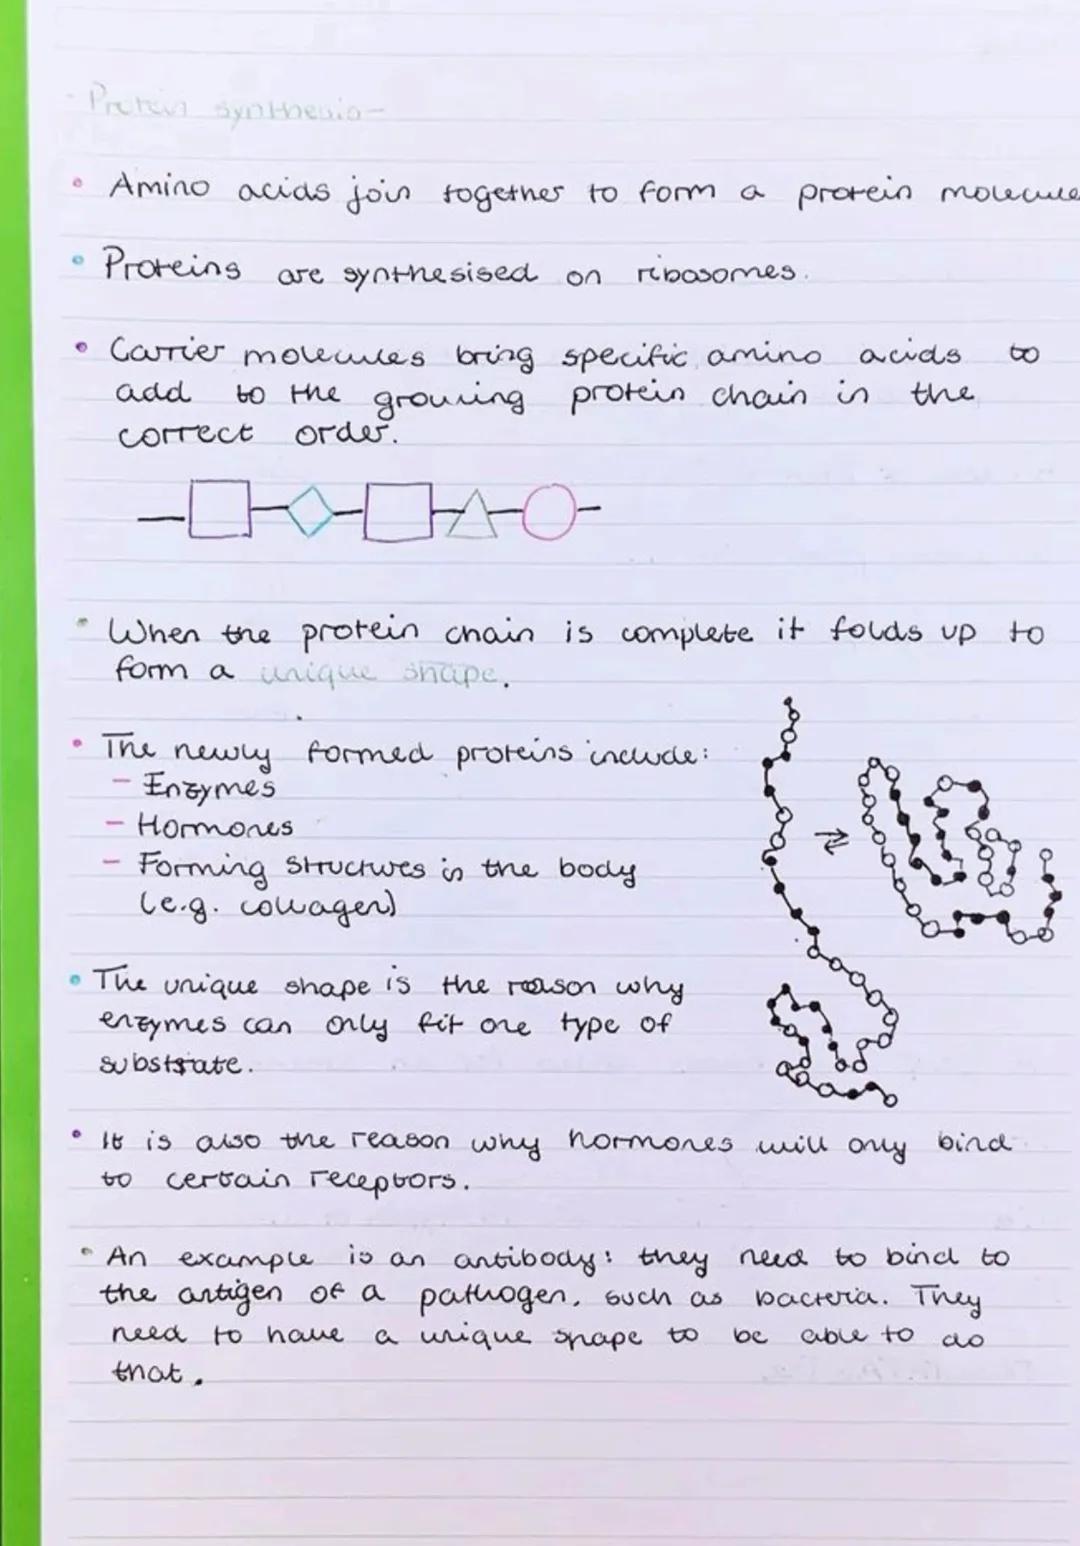 - Protein synthesis -
• Amino acids join together to form a protein molecule
• Proteins are synthesised on ribosomes.
• Carrier molecules bring specific amino acids to
add to the growing protein chain in the
correct order.
• When the protein chain is complete it folds up to
form a unique shape.
• The newly formed proteins include:
- Enzymes
- Hormones
- Forming structures in the body
(e.g. collagen)
• The unique shape is the reason why
enzymes can only fit one type of
substrate.
• It is also the reason why hormones will only bind
to certain receptors.
• An example is an antibody: they need to bind to
the antigen of a pathogen, such as bacteria. They
need to have a unique shape to be able to do
that.